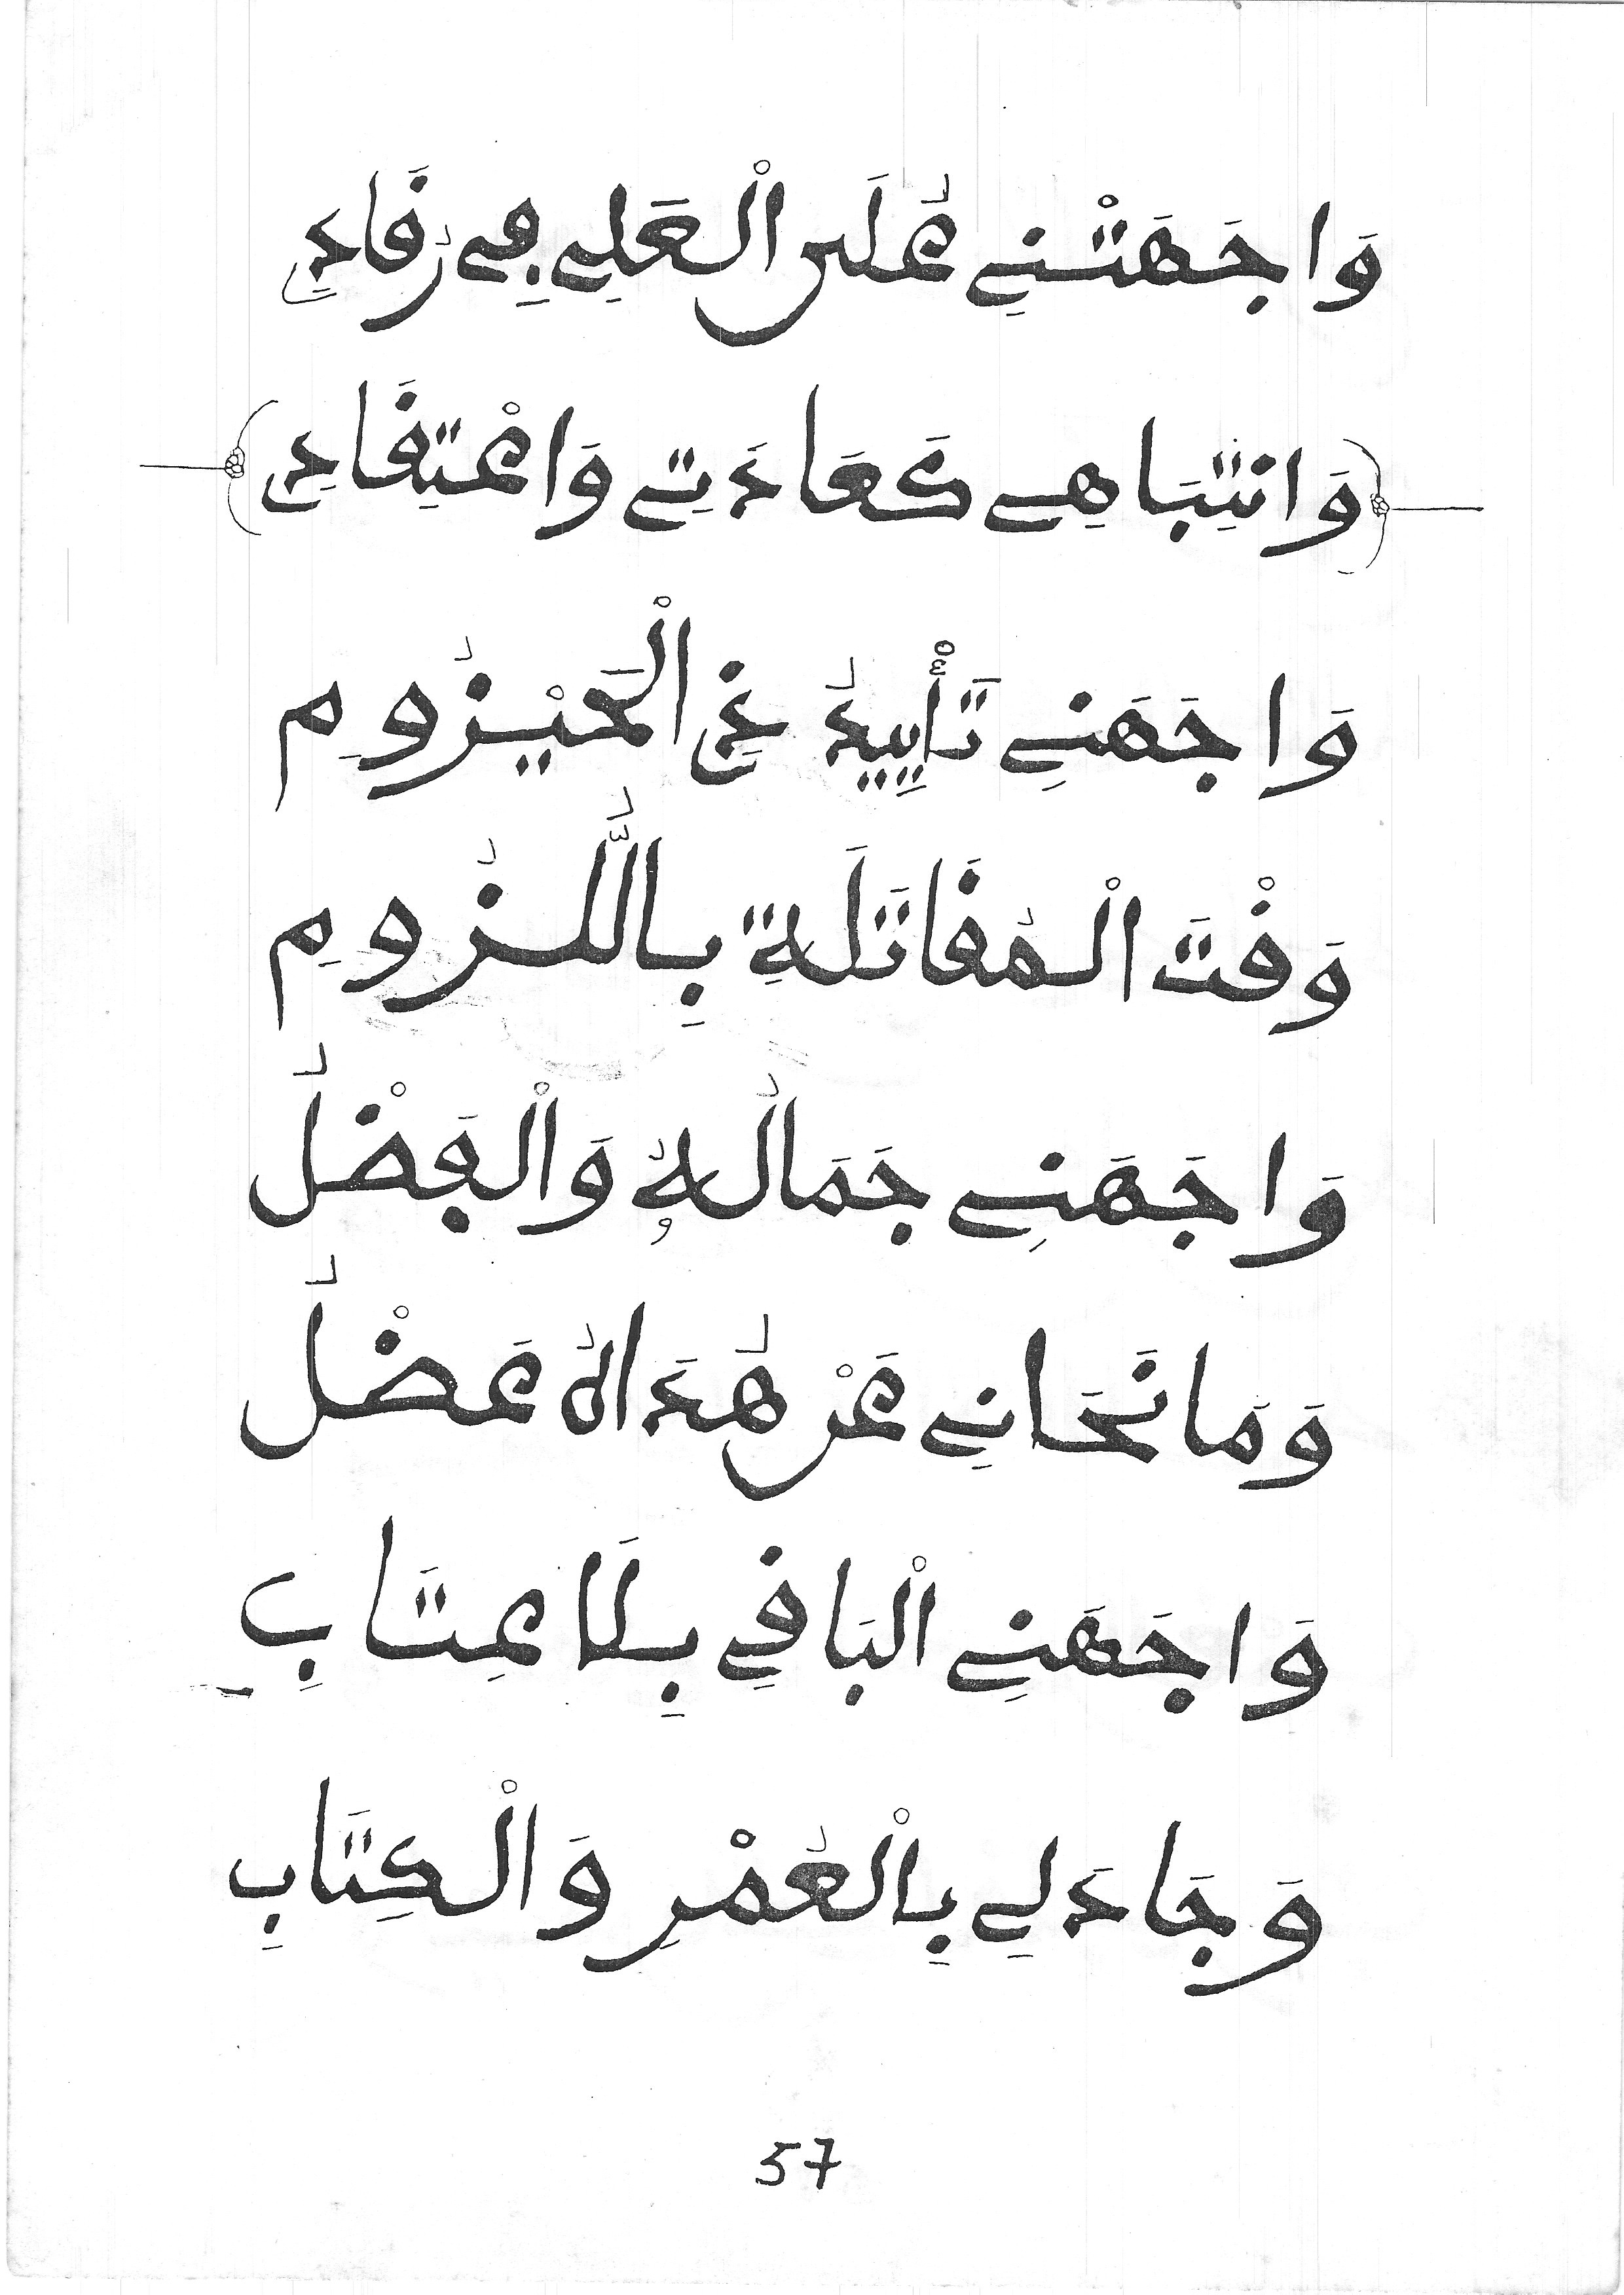 وَاجَهَتْنِي عُلَى الْعَلِي فِي رُقَادِي
وَانْتِبَاهِي كَعَادَتِي وَاعْتِقَادِي
وَاجَهَنِي تَأْيِيدُ ذِي الْحَيْزُومِ
وَقْتَ الْمُقَاتَلَةِ بِاللُّزُومِ
وَاجَهَنِي جَمَالُهُ وَالْفَضْلُ
وَمَا نَحَانِي عَنْ هُدَاهُ عَضْلُ
وَاجَهَنِي الْبَاقِي بِلَا عِتَابِ
وَجَادَ لِي بِالْعُمْرِ وَالْكِتَابِ
57